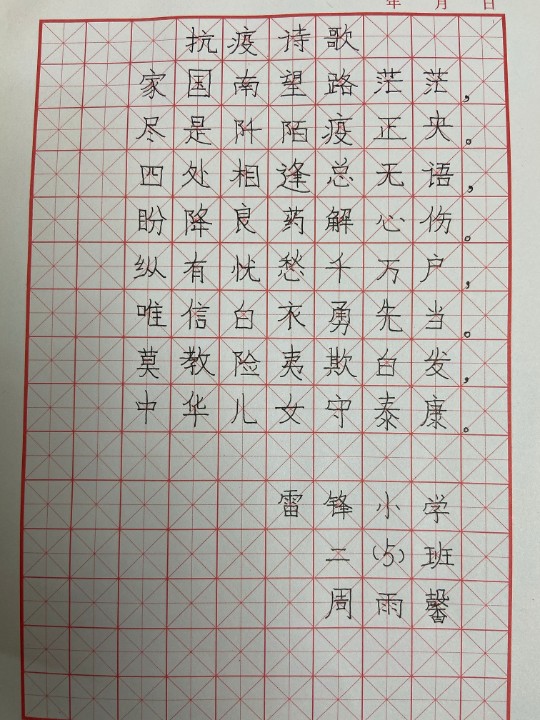 年 月 日
抗疫诗歌
家国南望路茫茫，
尽是阡陌疫正央。
四处相逢总无语，
盼降良药解心伤。
纵有忧愁千万户，
唯信白衣勇先当。
莫教险夷欺白发，
中华儿女守泰康。
雷锋小学
二(5)班
周雨馨